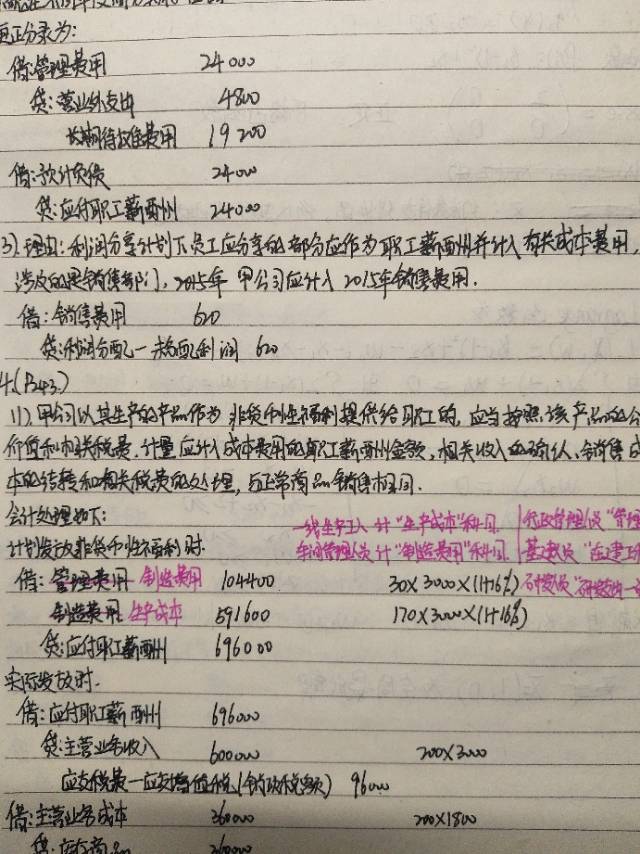 更正分录为:
借:管理费用 24000
贷:营业外支出 4800
长期待摊费用 19200
借:预计负债 24000
贷:应付职工薪酬 24000
3).理由:利润分享计划下员工应分享的部分应作为职工薪酬并计入有关成本费用,
涉及的是销售部门,2015年 甲公司应计入2015年销售费用.
借:销售费用 620
贷:利润分配—未分配利润 620
4.(P243)
(1).甲公司以其生产的产品作为非货币性福利提供给职工的,应当按照该产品的公
价值和相关税费,计量应计入成本费用的职工薪酬金额,相关收入的确认、销售成
本的结转和相关税费的处理,与正常商品销售相同.
会计处理如下: 一线生产工人 计“生产成本”科目 行政管理人员“管理
计划发放非货币性福利时. 车间管理人员计“制造费用”科目 基建人员“在建工
借:管理费用 制造费用 104400 30×3000×(1+16%) 研发人员“研发支出—
制造费用 生产成本 591600 170×3000×(1+16%)
贷:应付职工薪酬 696000
实际发放时.
借:应付职工薪酬 696000
贷:主营业务收入 600000 200×3000
应交税费—应交增值税(销项税额) 96000
借:主营业务成本 360000 200×1800
贷:库存商品 360000